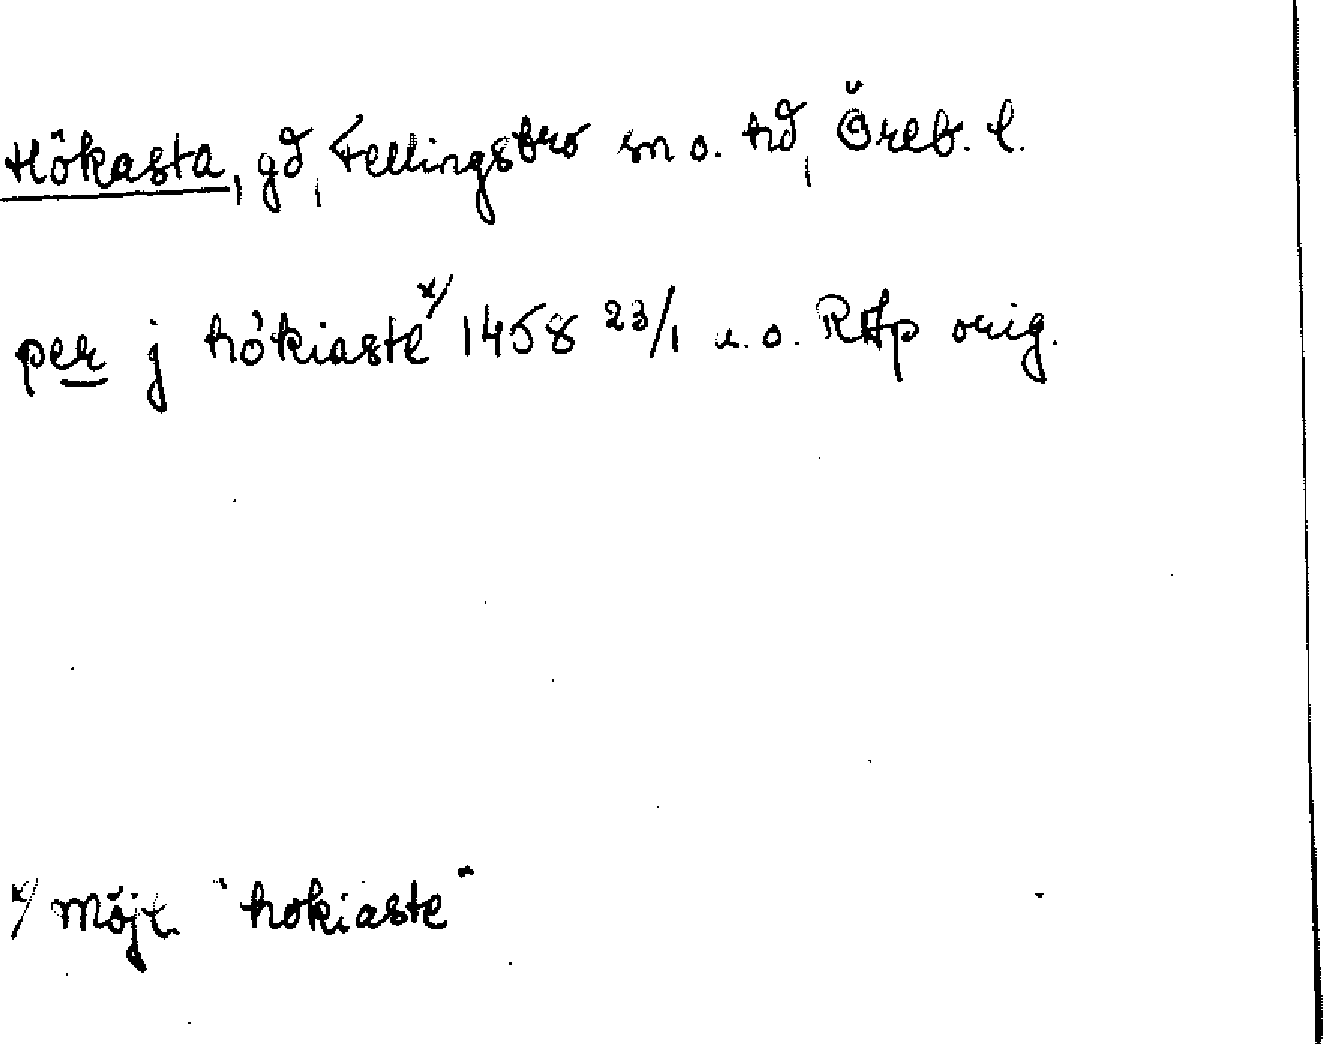 Hökasta, gd, Fellingsbro sn o. hd, Öreb. l.
per j hökiaste x/ 1458 23/1 u.o. RAp orig.
x/ Möjl. "hokiaste"